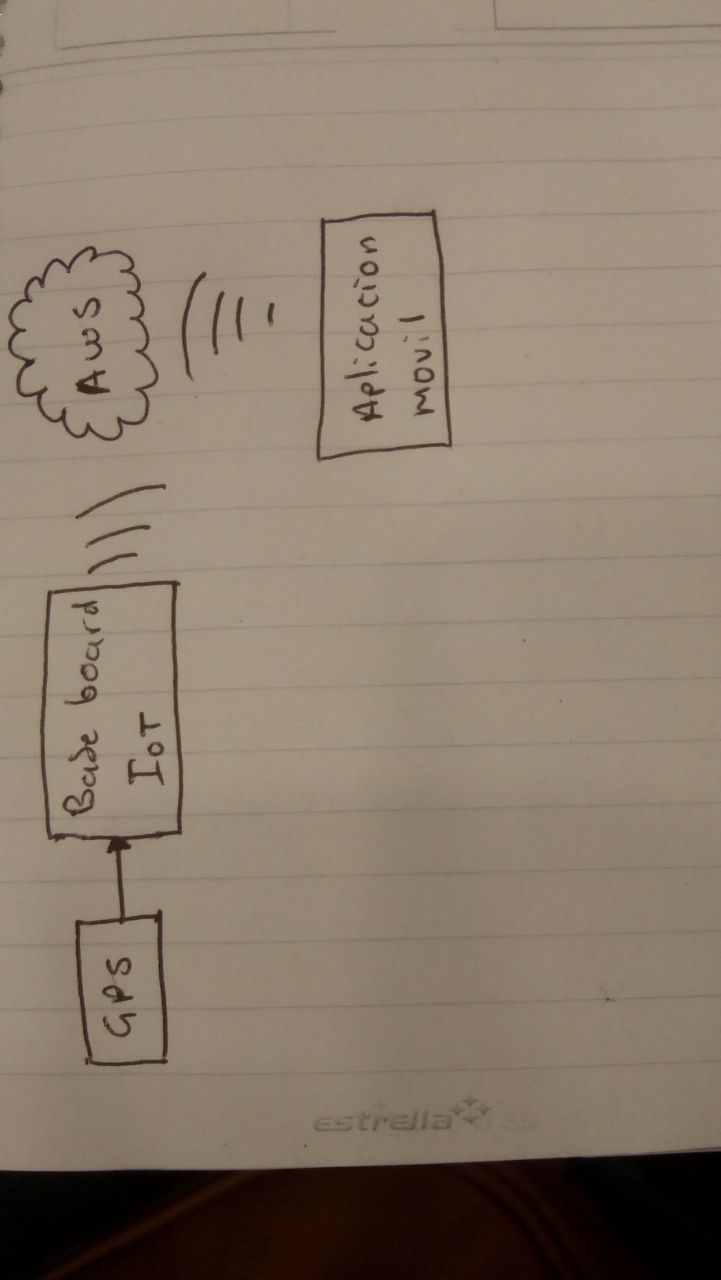 GPS
Base board
IoT
AWS
Aplicacion
movil
estrella